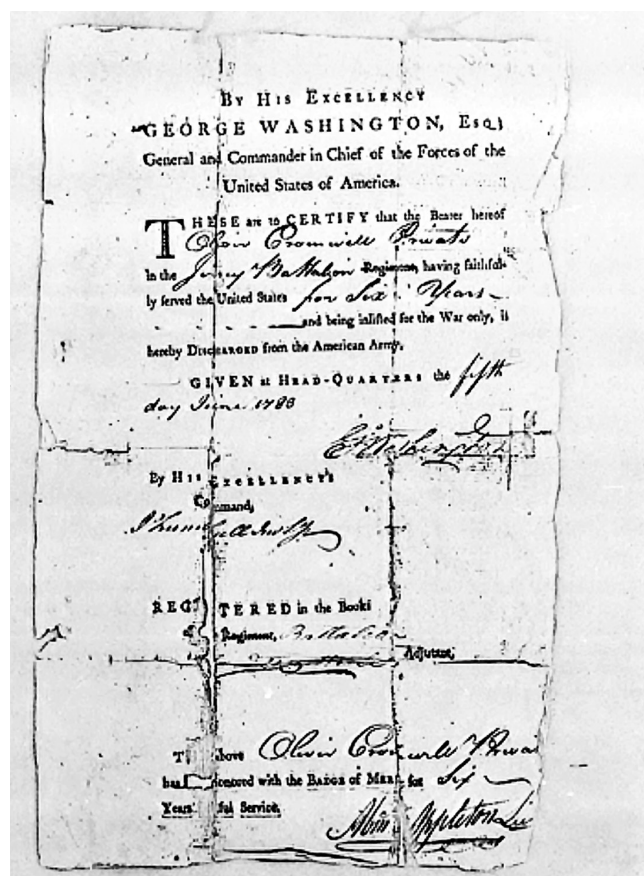 BY HIS EXCELLENCY
GEORGE WASHINGTON, ESQ;
General and Commander in Chief of the Forces of the
United States of America.
THESE are to CERTIFY that the Bearer hereof
Oliver Cromwell Private
in the Jersey Battalion Regiment, having faithful-
ly served the United States for Six Years
and being inlisted for the War only, is
hereby DISCHARGED from the American Army.
GIVEN at HEAD-QUARTERS the fifth
day June 1783
G Washington
By HIS EXCELLENCY'S
Command,
REG TERED in the Books
Regiment, Battalion
Adjutant,
T bove Oliver Cromwell Privat
has nored with the BADGE of MERIT for Six
Years ful Service.
Appleton